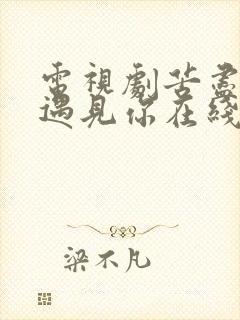 電視劇苦盡
遇見你在綫
梁不凡